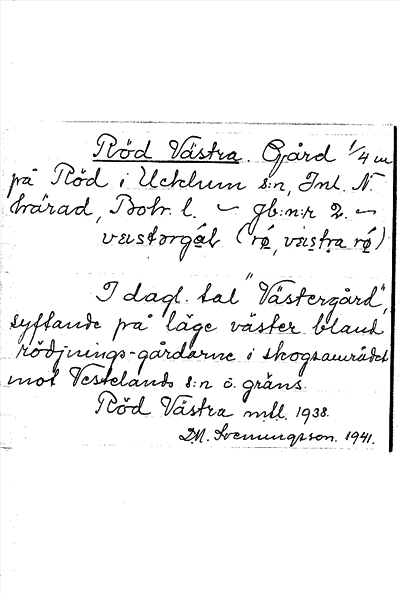 Röd Västra. Gård 1/4 m
på Röd i Ucklum s:n, Inl. N.
härad, Boh. l. – Jb:n:r 2. –
västərgál (rø, västra rø)
I dagl. tal "Västergård",
syftande på läge väster bland
rödjnings-gårdarne i skogsområdet
mot Vestelands s:n ö. gräns.
Röd Västra m.fl. 1938.
Svenungsson. 1941.